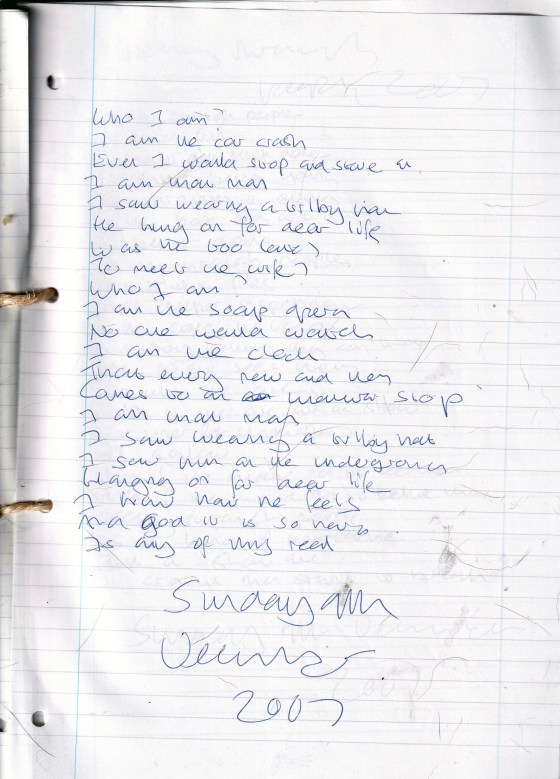 Who I am?
I am the car crash
Ever I would stop and stare at
I am that man
I saw wearing a trilby hat
He hung on for dear life
Was he too late?
To meet he wife?
Who I am?
I am the soap opera
No one would watch
I am the clock
That every now and then
Comes to an unawar stop
I am that man
I saw wearing a trilby hat
I saw him on the underground
Hanging on for dear life
I know how he feels
And god it is so heavy
Is any of this real
Sunday 9th
December
2007